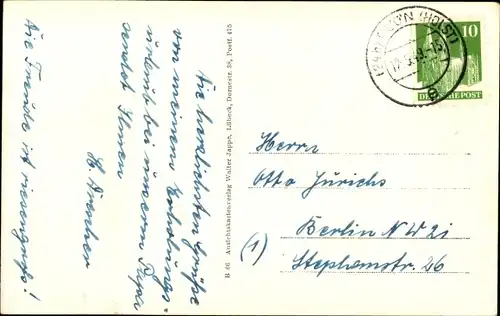 Die herzlichsten Grüße
von meinem Erholungs-
urlaub bei unserem Papa
sendet Ihnen
H.
Die Freude ist riesengroß!
B 66 Ansichtskartenverlag Walter Jappe, Lübeck, Dornestr. 38, Postf. 475
(HOLST)
10
DEUTSCHE POST
Herrn
Otto Jürichs
Berlin N W 21
(1)
Stephanstr. 26